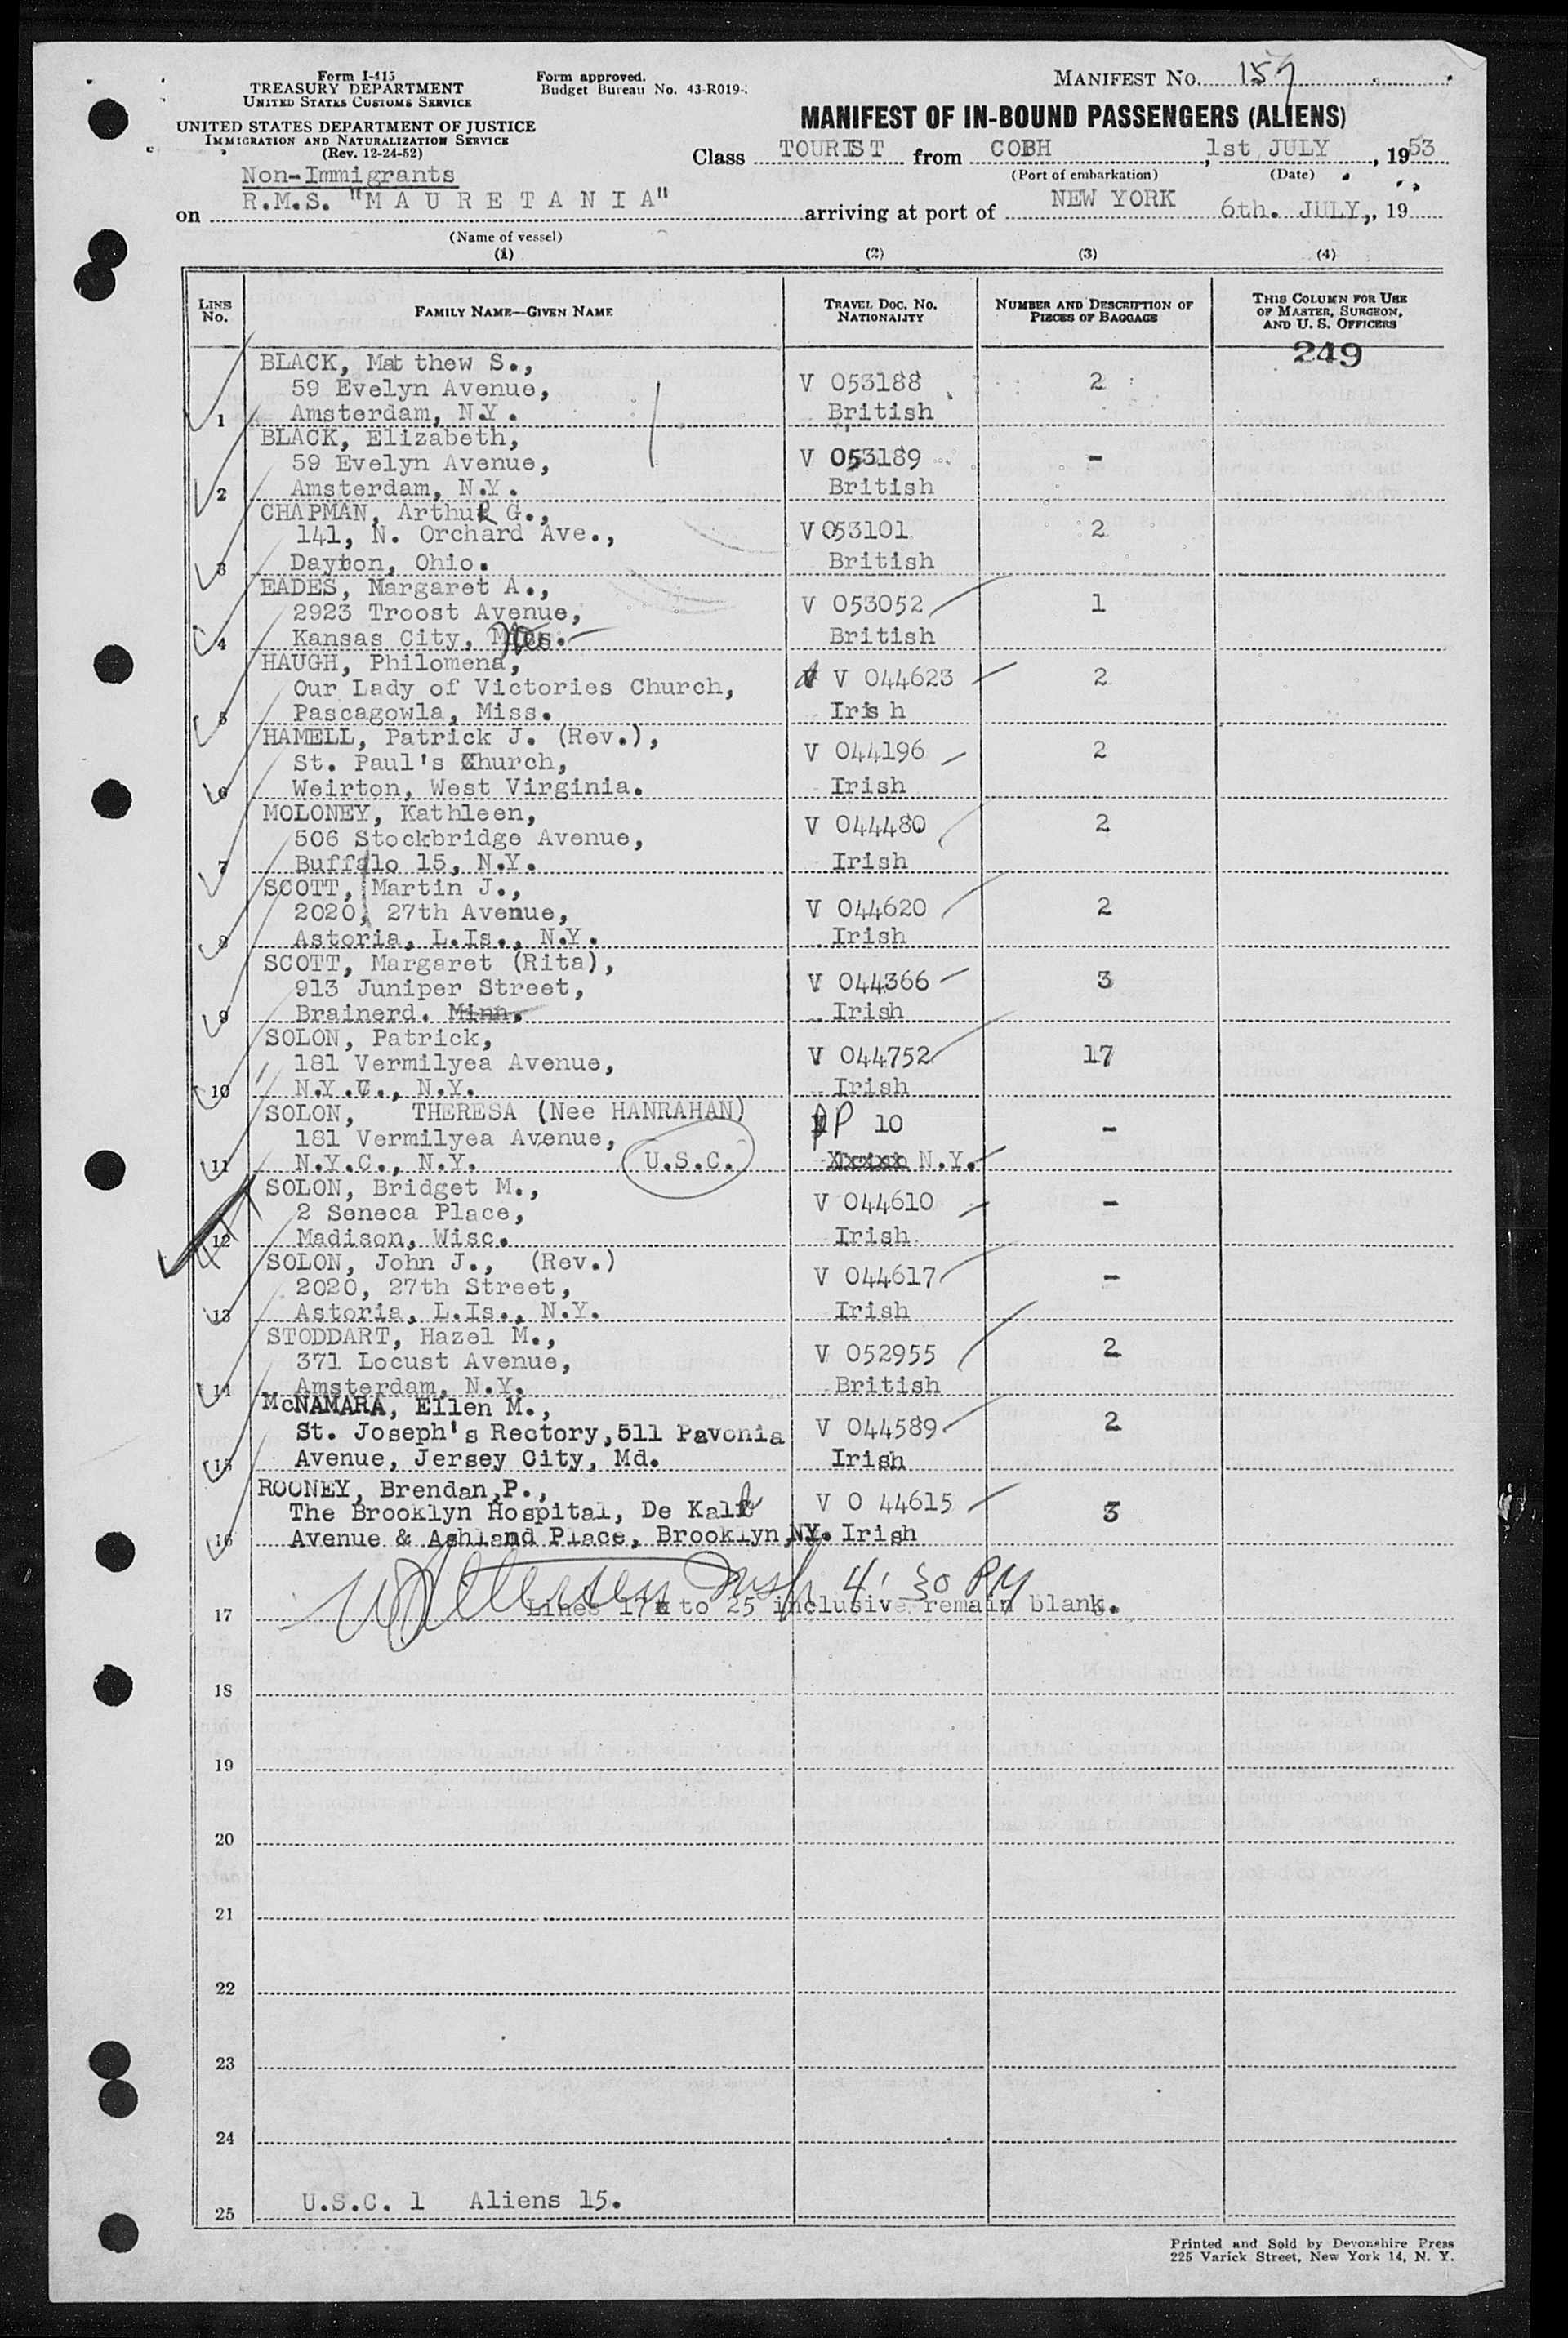 Form I-415
TREASURY DEPARTMENT
UNITED STATES CUSTOMS SERVICE
UNITED STATES DEPARTMENT OF JUSTICE
IMMIGRATION AND NATURALIZATION SERVICE
(Rev. 12-24-52)
Form approved.
Budget Bureau No. 43-R019-
MANIFEST NO. 157
MANIFEST OF IN-BOUND PASSENGERS (ALIENS)
Class TOURIST from COBH, 1st JULY, 1953
(Port of embarkation) (Date)
Non-Immigrants
on R.M.S. "M A U R E T A N I A" arriving at port of NEW YORK 6th. JULY,, 19
(Name of vessel)
(1) (2) (3) (4)
LINE No.
FAMILY NAME—GIVEN NAME
TRAVEL DOC. NO. NATIONALITY
NUMBER AND DESCRIPTION OF PIECES OF BAGGAGE
THIS COLUMN FOR USE OF MASTER, SURGEON, AND U. S. OFFICERS
249
BLACK, Mat thew S.,
59 Evelyn Avenue, V 053188 2
1 Amsterdam, N.Y. British
BLACK, Elizabeth,
59 Evelyn Avenue, V 053189 -
2 Amsterdam, N.Y. British
CHAPMAN, Arthur G.,
141, N. Orchard Ave., V 053101 2
3 Dayton, Ohio. British
EADES, Margaret A.,
2923 Troost Avenue, V 053052 1
4 Kansas City, British
HAUGH, Philomena,
Our Lady of Victories Church, V 044623 2
5 Pascagowla, Miss. Iris h
HAMELL, Patrick J. (Rev.),
St. Paul's Church, V 044196 2
6 Weirton, West Virginia. Irish
MOLONEY, Kathleen,
506 Stockbridge Avenue, V 044480 2
7 Buffalo 15, N.Y. Irish
SCOTT, Martin J.,
2020, 27th Avenue, V 044620 2
8 Astoria, L.Is., N.Y. Irish
SCOTT, Margaret (Rita),
913 Juniper Street, V 044366 3
9 Brainerd. Minn. Irish
SOLON, Patrick,
181 Vermilyea Avenue, V 044752 17
10 N.Y.C., N.Y. Irish
SOLON, THERESA (Nee HANRAHAN) P 10
181 Vermilyea Avenue, -
11 N.Y.C., N.Y. U.S.C. N.Y.
SOLON, Bridget M.,
2 Seneca Place, V 044610 -
12 Madison, Wisc. Irish
SOLON, John J., (Rev.)
2020, 27th Street, V 044617 -
13 Astoria, L.Is., N.Y. Irish
STODDART, Hazel M.,
371 Locust Avenue, V 052955 2
14 Amsterdam, N.Y. British
McNAMARA, Ellen M.,
St. Joseph's Rectory, 511 Pavonia V 044589 2
15 Avenue, Jersey City, Md. Irish
ROONEY, Brendan,P.,
The Brooklyn Hospital, De Kalb V 0 44615 3
16 Avenue & Ashland Place, Brooklyn,NY. Irish
4:30 PM
17 Lines 17 to 25 inclusive remain blank.
18
19
20
21
22
23
24
25 U.S.C. 1 Aliens 15.
Printed and Sold by Devonshire Press
225 Varick Street, New York 14, N. Y.